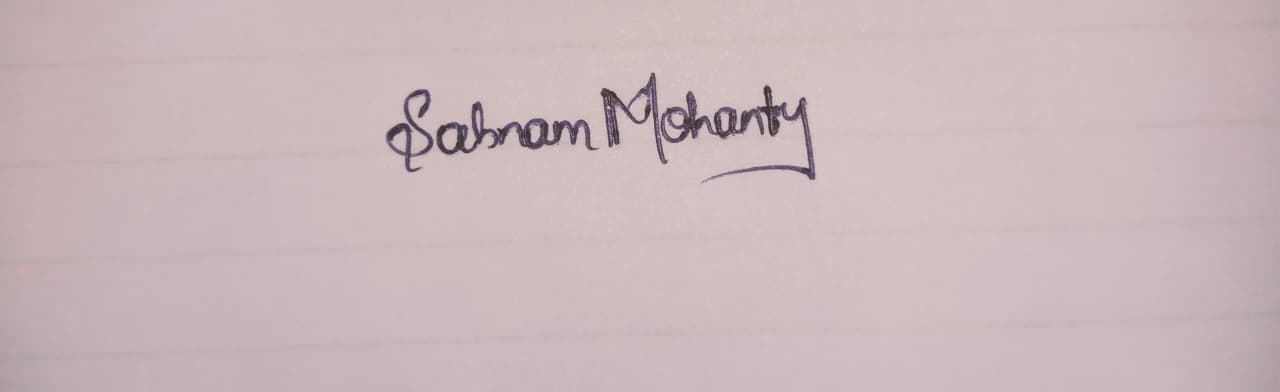 Sabnam Mohanty